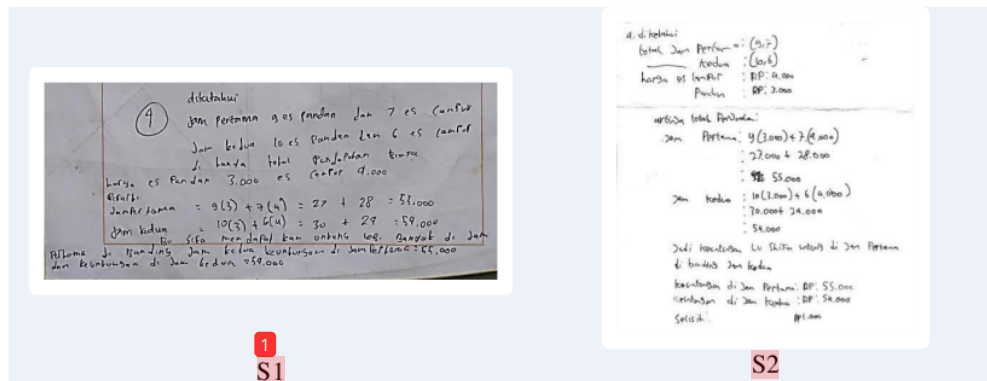 diketahui
4
Jam pertama 9 es pandan dan 7 es Campur
Jam kedua 10 es Pandan dan 6 es campur
di tanya total Pendapatan
harga es Pandan 3.000 es Campur 4.000
Jam Pertama = 9(3) + 7(4) = 27 + 28 = 55.000
Jam kedua = 10(3) + 6(4) = 30 + 24 = 54.000
Bu Sifa mendapat kan untung lebi Banyak di Jam
Pertama di Banding Jam kedua keuntungan di Jam Pertama = 55.000
dan keuntungan di Jam kedua = 54.000
1
S1
a. diketahui
total Jam Pertama : (9,7)
kedua : (10,6)
harga es campur : RP: 4.000
Pandan : RP: 3.000
total
Jam Pertama : 9(3.000) + 7(4.000)
: 27.000 + 28.000
: 55.000
Jam kedua : 10(3.000) + 6(4.000)
: 30.000 + 24.000
: 54.000
Jadi keuntungan bu Shifa untung di Jam Pertama
di banding Jam kedua
keuntungan di Jam Pertama: RP: 55.000
keuntungan di Jam kedua : RP: 54.000
Selisih: RP1.000
S2